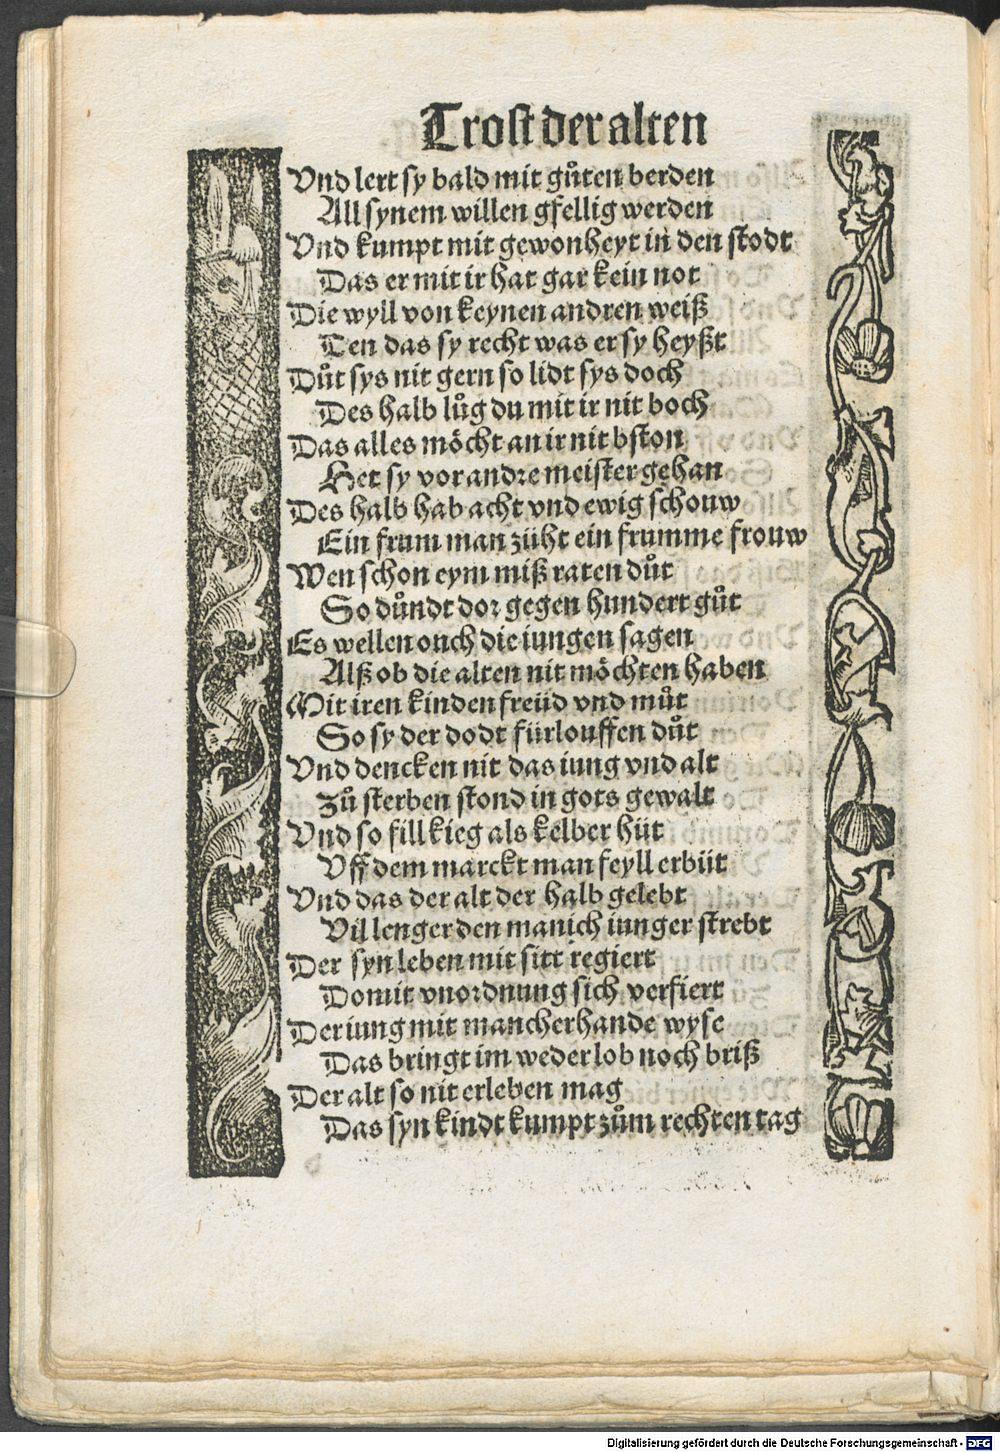 Trost der alten
Vnd lert sy bald mit gůten berden
All synem willen gfellig werden
Vnd kumpt mit gewonheyt in den stodt
Das er mit ir hat gar kein not
Die wyll von keynen andren weiß
Den das sy recht was er sy heyßt
Důt sys nit gern so lidt sys doch
Des halb lůg du mit ir nit boch
Das alles möcht an ir nit bston
Het sy vor andre meister gehan
Des halb hab acht vnd ewig schouw
Ein frum man züht ein frumme frouw
Wen schon eym miß raten důt
So důndt dor gegen hundert gůt
Es wellen ouch die iungen sagen
Alß ob die alten nit möchten haben
Mit iren kinden freüd vnd můt
So sy der dodt fürlouffen důt
Vnd dencken nit das iung vnd alt
Zů sterben stond in gots gewalt
Vnd so fill kieg als kelber hüt
Vff dem marckt man feyll erbüt
Vnd das der alt der halb gelebt
Vil lenger den manich iunger strebt
Der syn leben mit sitt regiert
Domit vnordnung sich verfiert
Der iung mit mancherhande wyse
Das bringt im weder lob noch briß
Der alt so nit erleben mag
Das syn kindt kumpt zům rechten tag
Digitalisierung gefördert durch die Deutsche Forschungsgemeinschaft - DFG